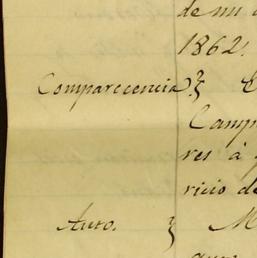 de mi
1862.
Comparecencia
Camp
res á
ricio de
Auto. M